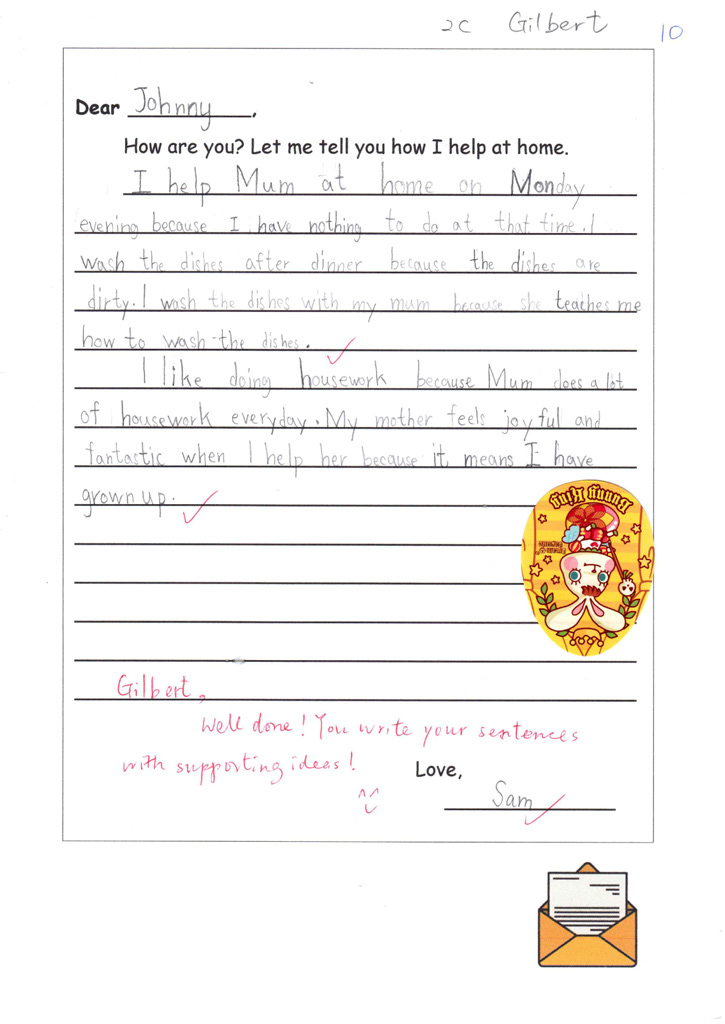 2C Gilbert 10
Dear Johnny,
How are you? Let me tell you how I help at home.
I help Mum at home on Monday
evening because I have nothing to do at that time. I
wash the dishes after dinner because the dishes are
dirty. I wash the dishes with my mum because she teaches me
how to wash the dishes.
I like doing housework because Mum does a lot
of housework everyday. My mother feels joyful and
fantastic when I help her because it means I have
grown up.
Gilbert,
Well done! You write your sentences
with supporting ideas!
Love,
Sam